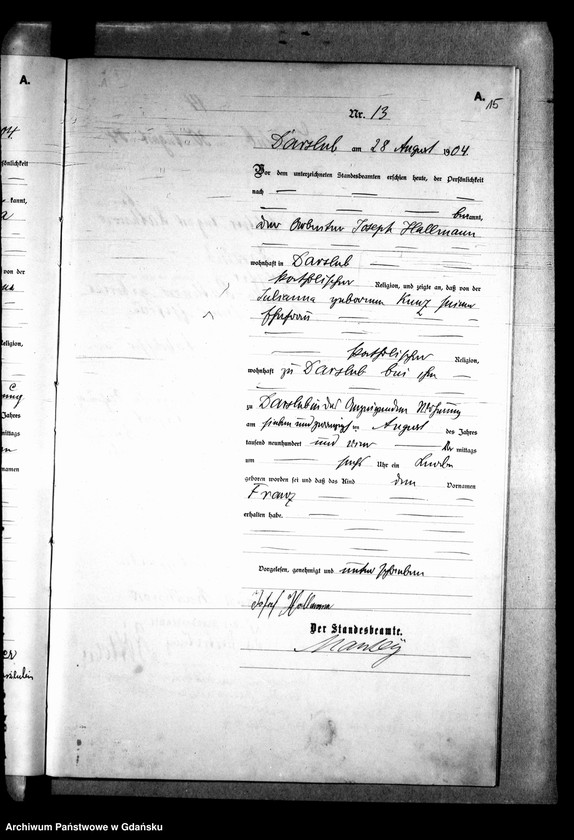 A.
A. 15
Nr. 13
Darslub am 28 August 1904.
Vor dem unterzeichneten Standesbeamten erschien heute, der Persönlichkeit
nach
bekannt,
der Arbeiter Joseph Hallmann
wohnhaft in Darslub
katholischer Religion, und zeigte an, daß von der
Julianna geborenen Kunz seiner
Ehefrau
katholischer Religion,
wohnhaft zu Darslub bei ihm
zu Darslub in des Anzeigenden Wohnung
am sieben und zwanzigsten August des Jahres
tausend neunhundert und vier mittags
um Uhr ein Knabe
geboren worden sei und daß das Kind den Vornamen
Franz
erhalten habe.
Vorgelesen, genehmigt und unterschrieben
Josef Hallmann
Der Standesbeamte.
Archiwum Państwowe w Gdańsku